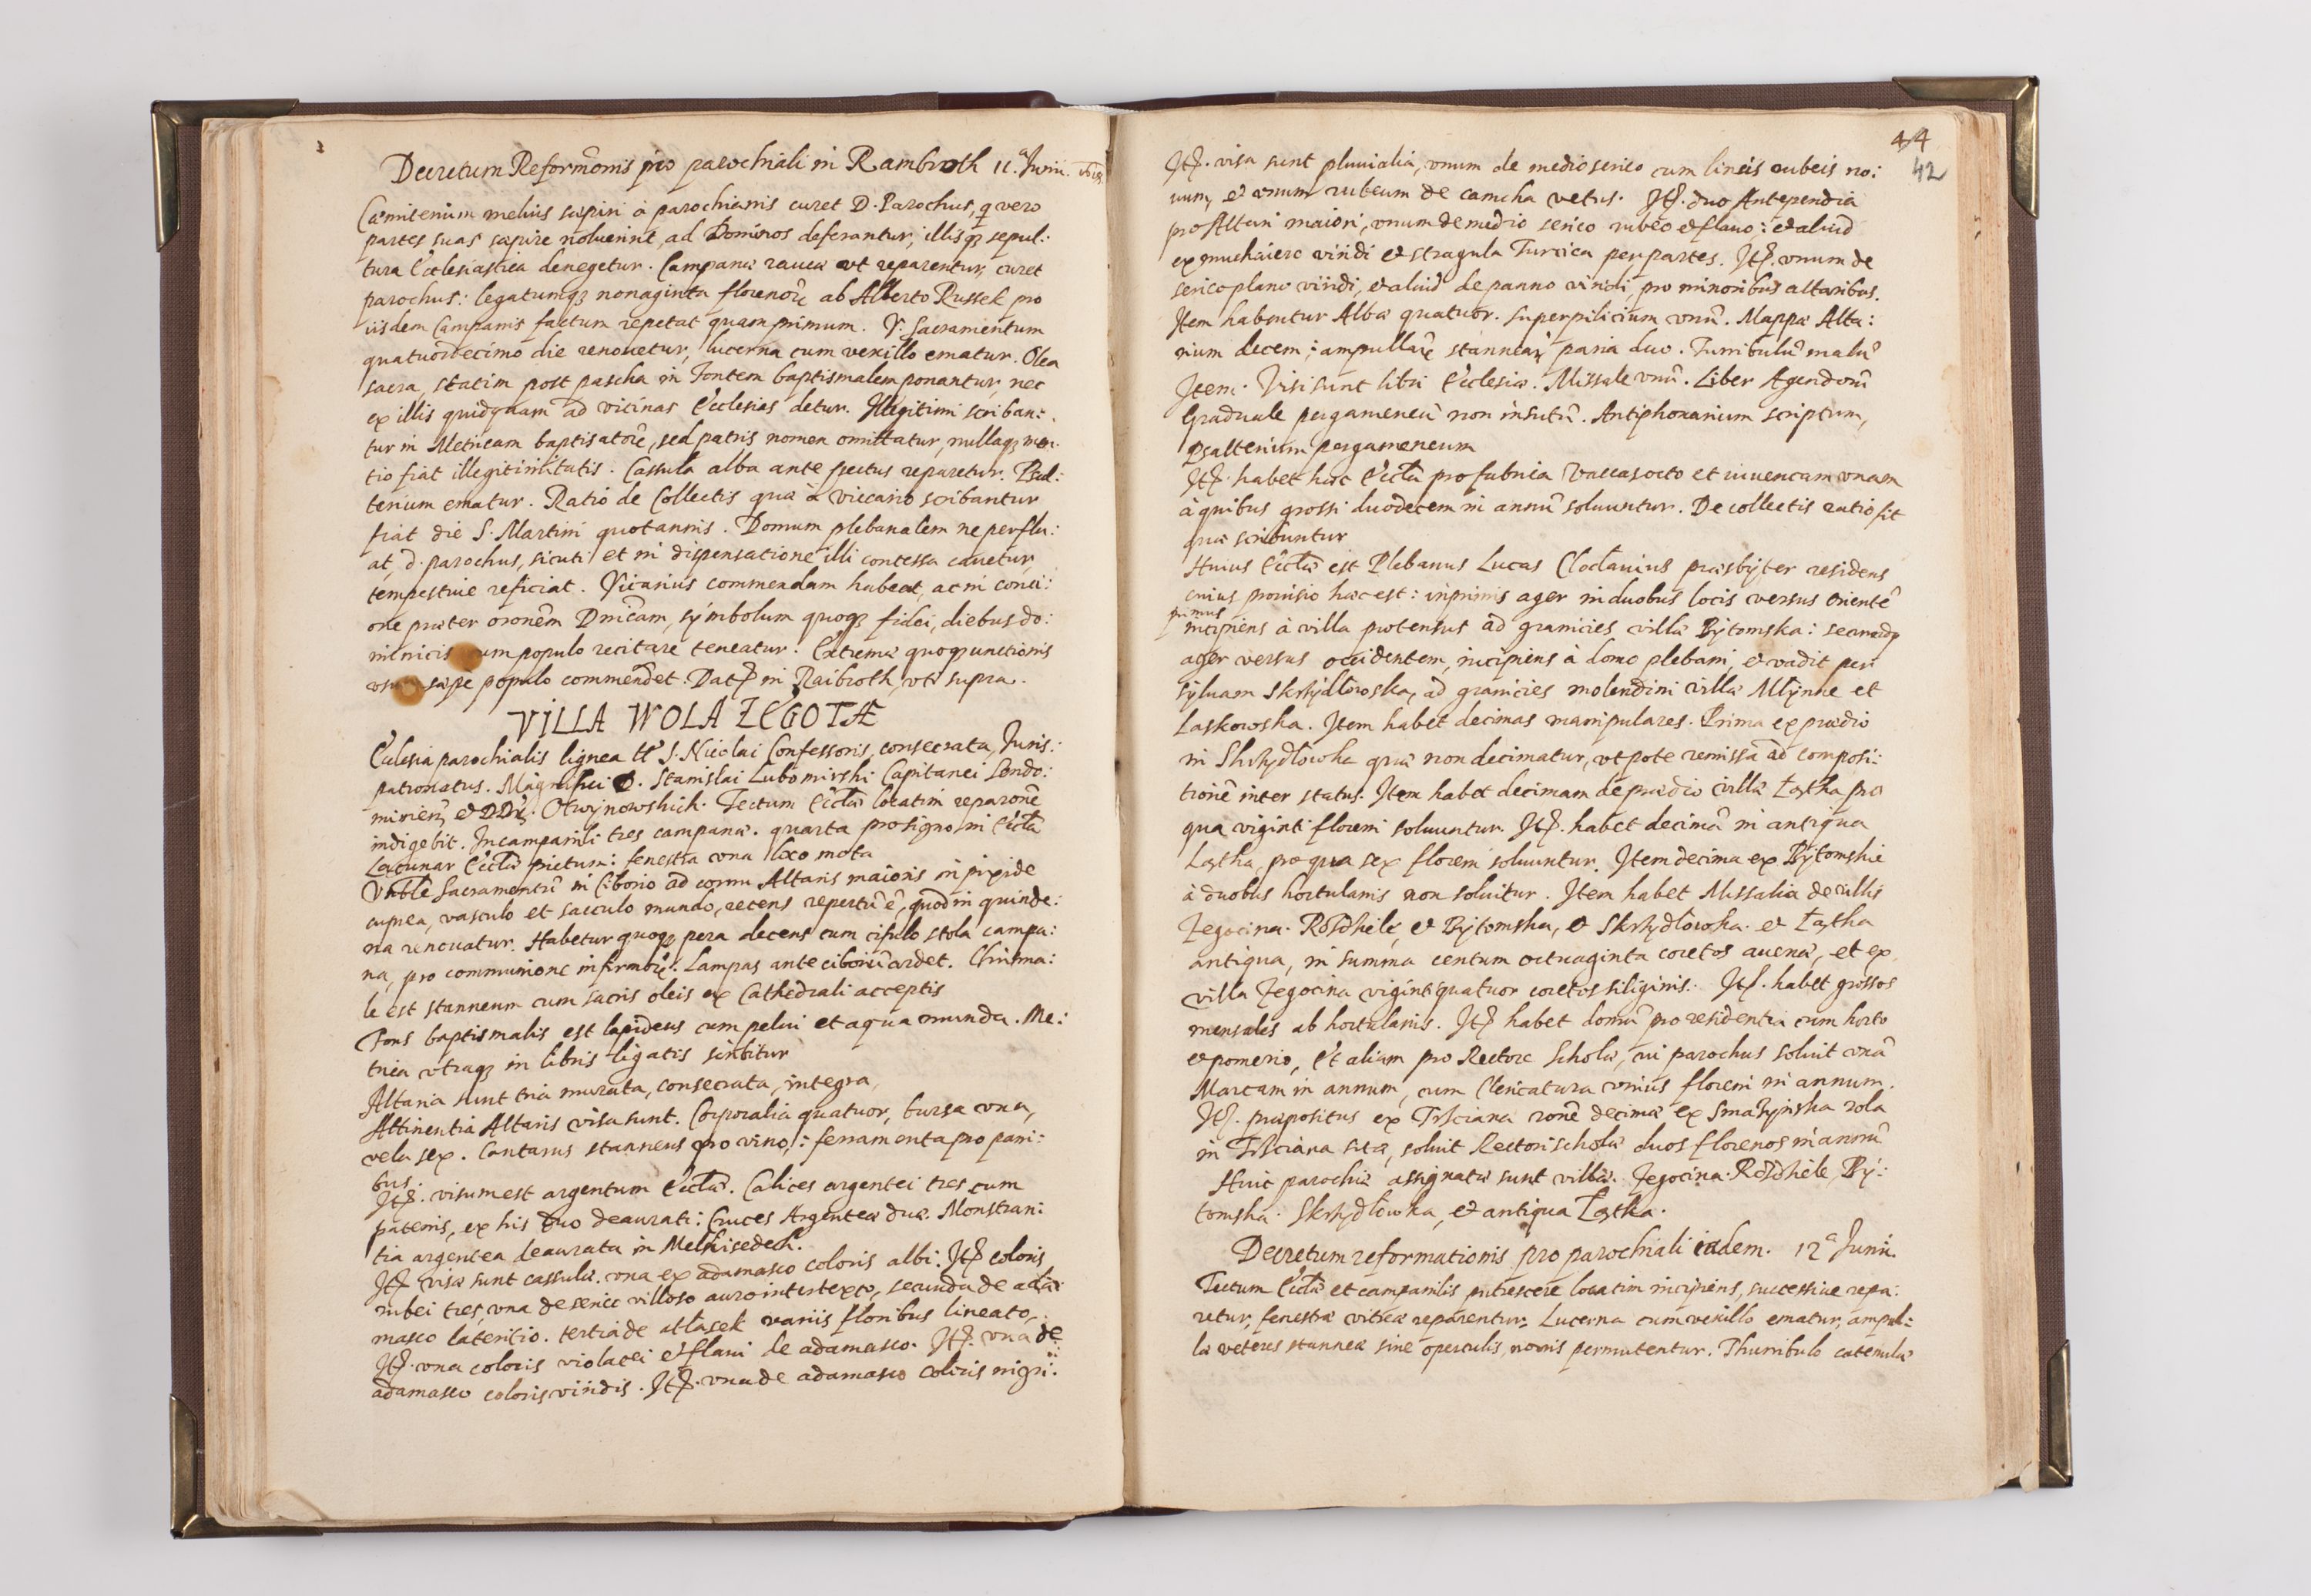 Decretum Reformõnis pro parochiali in Rambroth 11.ª Junii.
Cæmiterium melius sæpiri à parochianis curet D. Parochus, q vero
partes suas sæpire noluerint, ad Dominos deferantur, illisq3 sepul:
tura Ecclesiastica denegetur. Campanæ raucæ vt reparentur, curet
parochus: legatumq3 nonaginta florenorũ ab Alberto Russek pro
iisdem Campanis factum repetat quam primum. V. Sacramentum
quatuordecimo die renouetur, lucerna cum vexillo ematur. Olea
sacra, statim post pascha in Fontem baptismalem ponantur, nec
ex illis quidquam ad vicinas Ecclesias detur. Illegitimi scriban:
tur in Metricam baptisatorũ, sed patris nomen omittatur, nullaq3 men:
tio fiat illegitimitatis. Cassula alba ante pectus reparetur. Psal:
terium ematur. Ratio de Collectis quæ à viccario scribantur
fiat die S. Martini quotannis. Domum plebanalem ne perflu:
at, d. parochus, sicuti et in dispensatione illi concessa cauetur,
tempestiue reficiat. Vicarius commendam habeat, ac in conci:
one præter orõnem Dnicam, symbolum quoq3 fidei, diebus do:
minicis cum populo recitare teneatur. Extremæ quoq3 unctionis
sæpe populo commendet. Dat3 in Raibroth, vt supra.
VILLA WOLA ZEGOTÆ
Ecclesia parochialis lignea tt' S. Nicolai Confessoris, consecrata, Juris:
patronatus. Magnifici D. Stanislai Lubomirski Capitanei Sando:
mirien3 & DD. Otwynowskich. Tectum Eccłæ locatim reparõne
indigebit. In campanili tres campanæ. quarta pro signo in Eccła
Lacunar Eccłæ pictum: fenestra vna loco mota
Vnble Sacramentũ in Ciborio ad cornu Altaris maioris in pixide
cuprea, vasculo et sacculo mundo, recens repertũ ẽ, quod in quinde:
na renouatur. Habetur quoq3 pera decens cum cifulo stola campa:
na, pro communione infirmorũ. Lampas ante ciboriũ ardet. Chrisma:
le est stanneum cum sacris oleis ex Cathedrali acceptis
Fons baptismalis est lapideus cum pelui et aqua munda. Me:
trica vtraq3 in libris ligatis scribitur
Altaria sunt tria murata, consecrata, integra,
Attinentia Altaris visa sunt. Corporalia quatuor, bursa vna,
vela sex. Cantarus stanneus pro vino,: ferramenta pro pani:
bus.
It3. visum est argentum Eccłæ. Calices argentei tres cum
patenis, ex his duo deaurati: Cruces Argenteæ duæ. Monstran:
tia argentea deaurata in Melhisedech.
It3 visæ sunt cassulæ. vna ex adamasco coloris albi: It3 coloris
rubei tres, vna de serico villoso auro intertexto, secunda de ada:
masco lateritio. tertia de atłasek variis floribus lineato,
It3. vna coloris violacei & flaui de adamasco. It3. vna de
adamasco coloris viridis. It3. vna de adamasco coloris nigri.
44
42
It3. visa sunt pluuialia, vnum de medio serico cum lineis rubeis no:
uum, & vnum rubeum de camcha vetus. It3. duo Antependia
pro Altari maiori, vnum de medio serico rubeo & flauo: & aliud
ex muchaiero viridi & stragula Turcica per partes. It3. vnum de
serico plano viridi, & aliud de panno viridi, pro minoribus altaribus.
Item habentur Albæ quatuor. superpilicium vnũ. Mappæ Alta:
rium decem; ampullarũ stannearũ paria duo. Turribulũ malũ
Item. Visi sunt libri Ecclesiæ. Missale vnũ. Liber Agendorũ
Graduale pergameneũ non insutũ. Antiphonarium scriptum,
Psalterium pergameneum
It3. habet hæc Eccła pro fabrica Vaccas octo et iuuencam vnam
à quibus grossi duodecem in annũ soluuntur. De collectis ratio fit
quæ scribuntur
Huius Eccłæ est Plebanus Lucas Cloctauius præsbyter residens
cuius prouisio hæc est: inprimis ager in duobus locis versus orientẽ
primus
incipiens à villa protensus ad granicies villæ Bytomska: secundq
ager versus occidentem, incipiens à domo plebani, & vadit per
syluam Skrhydłowska, ad granicies molendini villæ Młynne et
Laskowska. Item habet decimas manipulares. Prima ex prædio
in Skrhydłowka quæ non decimatur, vt pote remissa ad composi:
tionẽ inter status. Item habet decimam de prædio villæ Łąkha pro
qua viginti floreni soluuntur. It3. habet decimã in antiqua
Łąkha, pro qua sex floreni soluuntur. Item decima ex Bytomskie
à duobus hortulanis non soluitur. Item habet Missalia de villis
Zegocina. Rosdhiele, & Bytomska, & Skrhydłowka. & Łąkha
antiqua, in summa centum octuaginta coretos auenæ, et ex
villa Zegocina viginti quatuor coretos siliginis. It3. habet grossos
mensales ab hortulanis. It3 habet domũ pro residentia cum horto
& pomerio, Et aliam pro Rectore Scholæ, cui parochus soluit vnã
Marcam in annum, cum Clericatura vnius floreni in annum.
It3. præpositus ex Trsciana ronẽ decimæ ex Smarzynska rola
in Trsciana sita, soluit Rectori scholæ duos florenos in annũ
Huic parochiæ assignatæ sunt villæ. Zegocina. Rosdhiele, By:
tomska. Skrhydłowka, & antiqua Łąkha.
Decretum reformationis pro parochiali eadem. 12ª Junii.
Tectum Eccłæ et campanilis putrescere locatim incipiens, successiue repa:
retur, fenestræ vitreæ reparentur. Lucerna cum vexillo ematur, ampul:
læ veteres stanneæ sine operculis, nouis permutentur. Thuribulo catenulæ